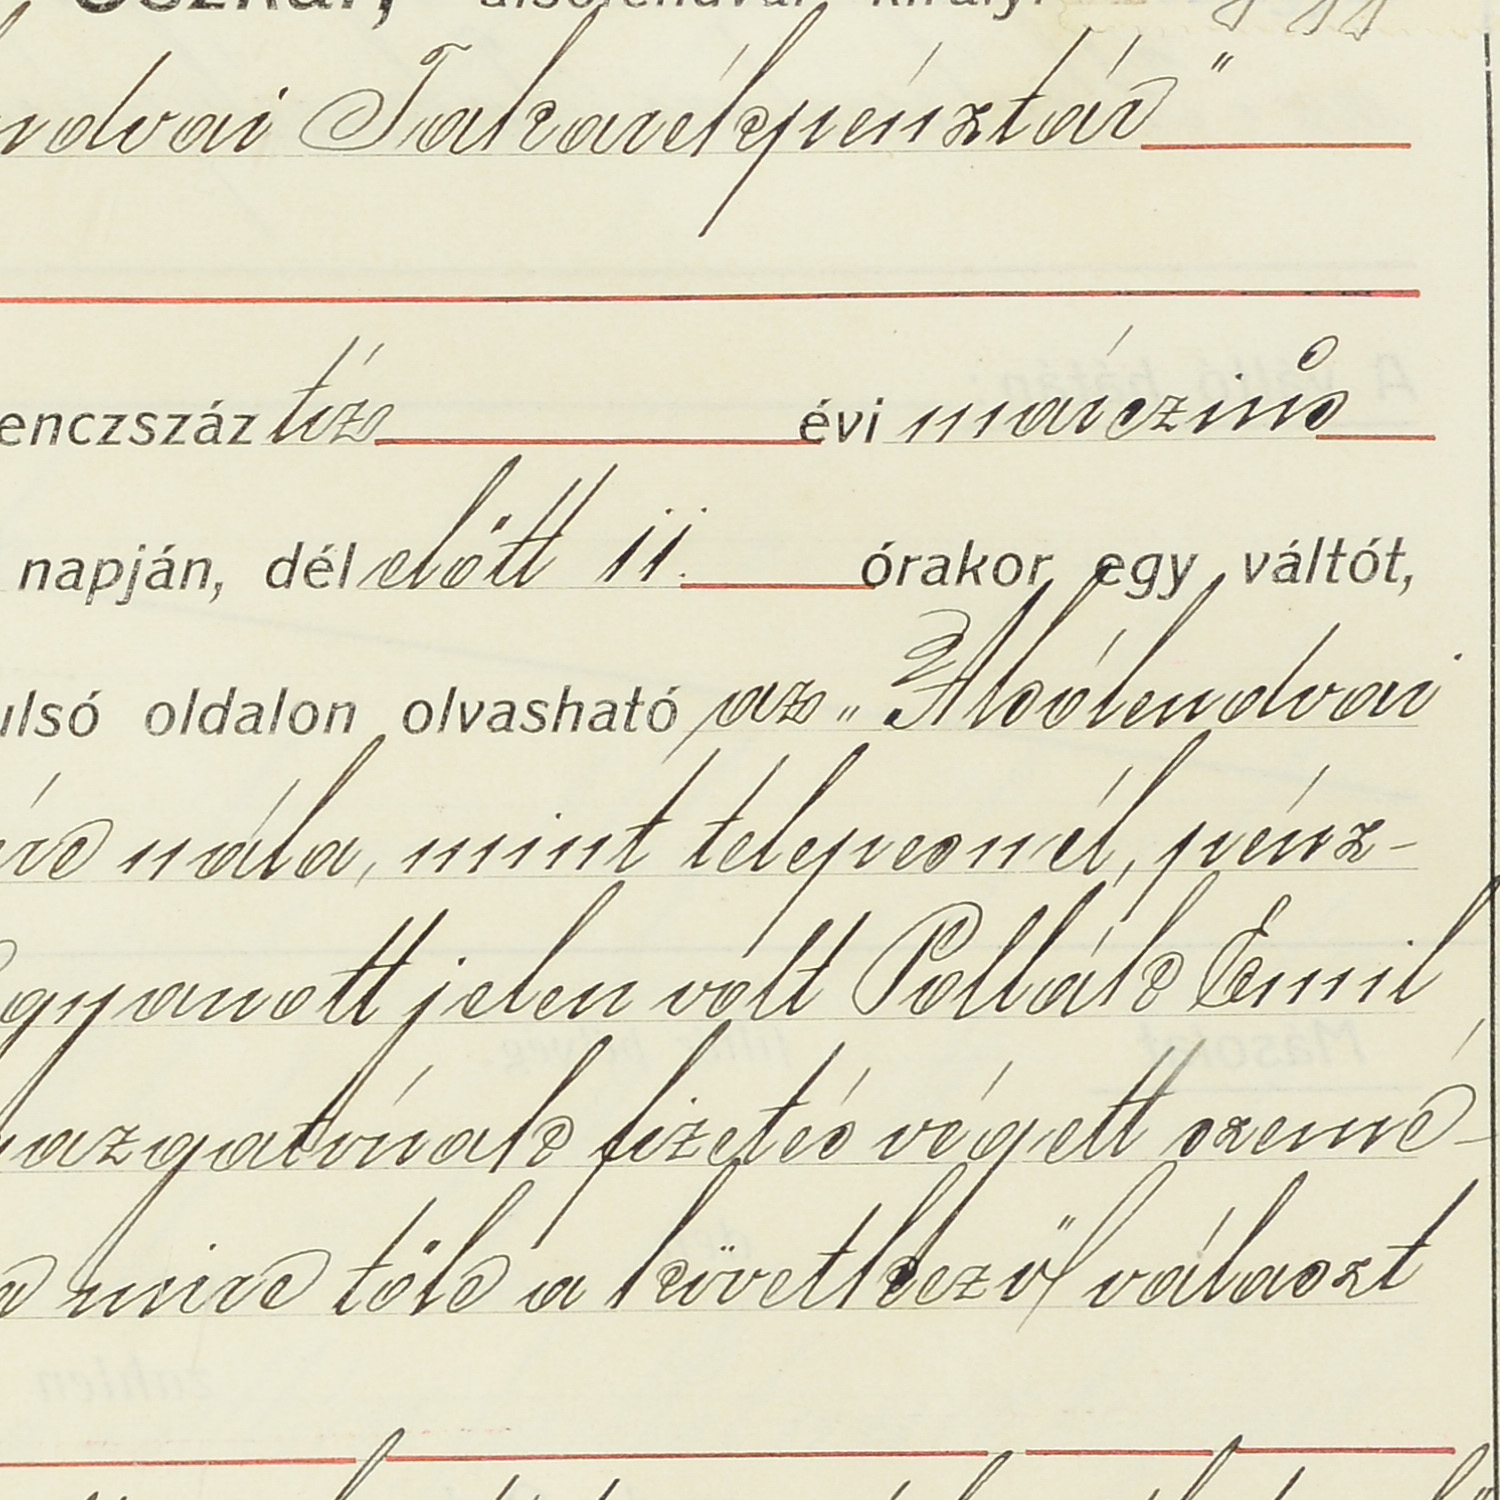 Oszkár, alsólendvai királyi
ndvai Takarékpénztár"
enczszáz tíz évi márczius
napján, dél előtt 11. órakor egy váltót,
ulsó oldalon olvasható az „Alsólendvai
nála, mint telepesnél, pénz-
gyanott jelen volt Pollák Emil
azgatónak fizetés végett szemé-
mire tőle a következő választ